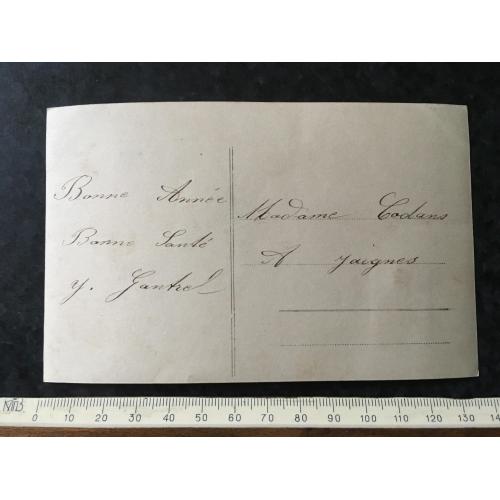 Bonne Année
Bonne Santé
Y. Gantrel
Madame Codans
A Jaignes
MB
0 10 20 30 40 50 60 70 80 90 100 110 120 130 14